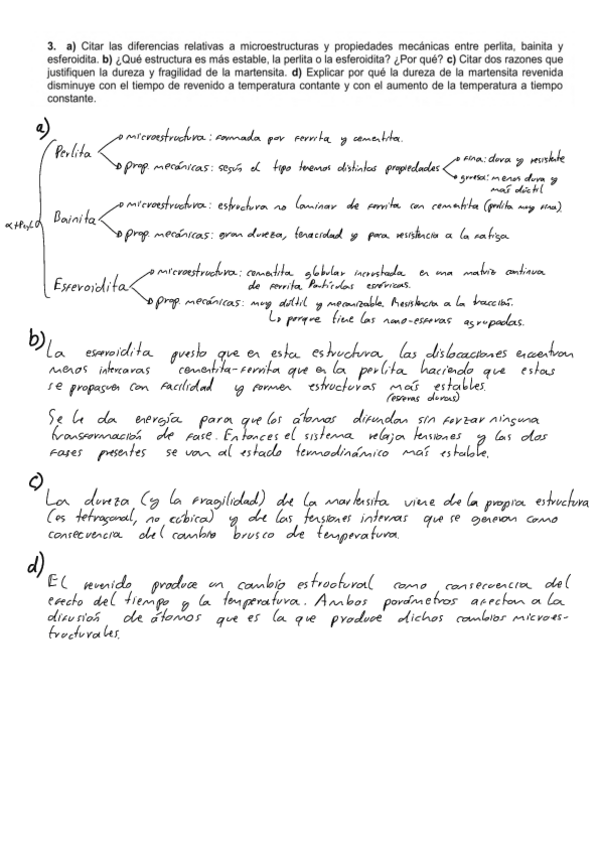 3. a) Citar las diferencias relativas a microestructuras y propiedades mecánicas entre perlita, bainita y
esferoidita. b) ¿Qué estructura es más estable, la perlita o la esferoidita? ¿Por qué? c) Citar dos razones que
justifiquen la dureza y fragilidad de la martensita. d) Explicar por qué la dureza de la martensita revenida
disminuye con el tiempo de revenido a temperatura contante y con el aumento de la temperatura a tiempo
constante.
a)
Perlita
microestructura: formada por ferrita y cementita.
prop. mecánicas: según el tipo tenemos distintas propiedades
fina: dura y resistente
gruesa: menos dura y
más dúctil
α+Fe3C
Bainita
microestructura: estructura no laminar de ferrita con cementita (perlita muy fina)
prop. mecánicas: gran dureza, tenacidad y para resistencia a la fatiga
Esferoidita
microestructura: cementita globular incrustada en una matriz continua
de ferrita. Partículas esféricas.
prop. mecánicas: muy dúctil y mecanizable. Resistencia a la tracción.
porque tiene las nano-esferas agrupadas.
b)
La esferoidita puesto que en esta estructura las dislocaciones encuentran
menos intercaras cementita-ferrita que en la perlita haciendo que estas
se propaguen con facilidad y formen estructuras más estables.
(esferas duras)
Se le da energía para que los átomos difundan sin forzar ninguna
transformación de fase. Entonces el sistema relaja tensiones y las dos
fases presentes se van al estado termodinámico más estable.
c)
La dureza (y la fragilidad) de la martensita viene de la propia estructura
(es tetragonal, no cúbica) y de las tensiones internas que se generan como
consecuencia del cambio brusco de temperatura.
d)
El revenido produce un cambio estructural como consecuencia del
efecto del tiempo y la temperatura. Ambos parámetros afectan a la
difusión de átomos que es la que produce dichos cambios microes-
tructurales.